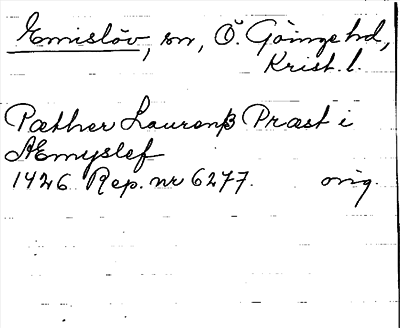 Emislöv, sn, Ö. Göinge hd,
Krist. l.
Pæther Laurenß Præst i
Æmyslef
1426 Rep. nr 6277. orig.